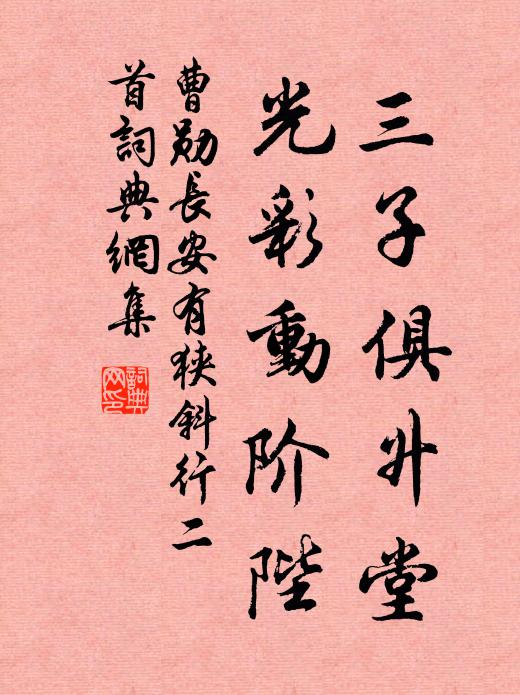 三子俱升堂
光彩動阶陛
曹勛長安有狹斜行二
首詞典網集
詞典
网印